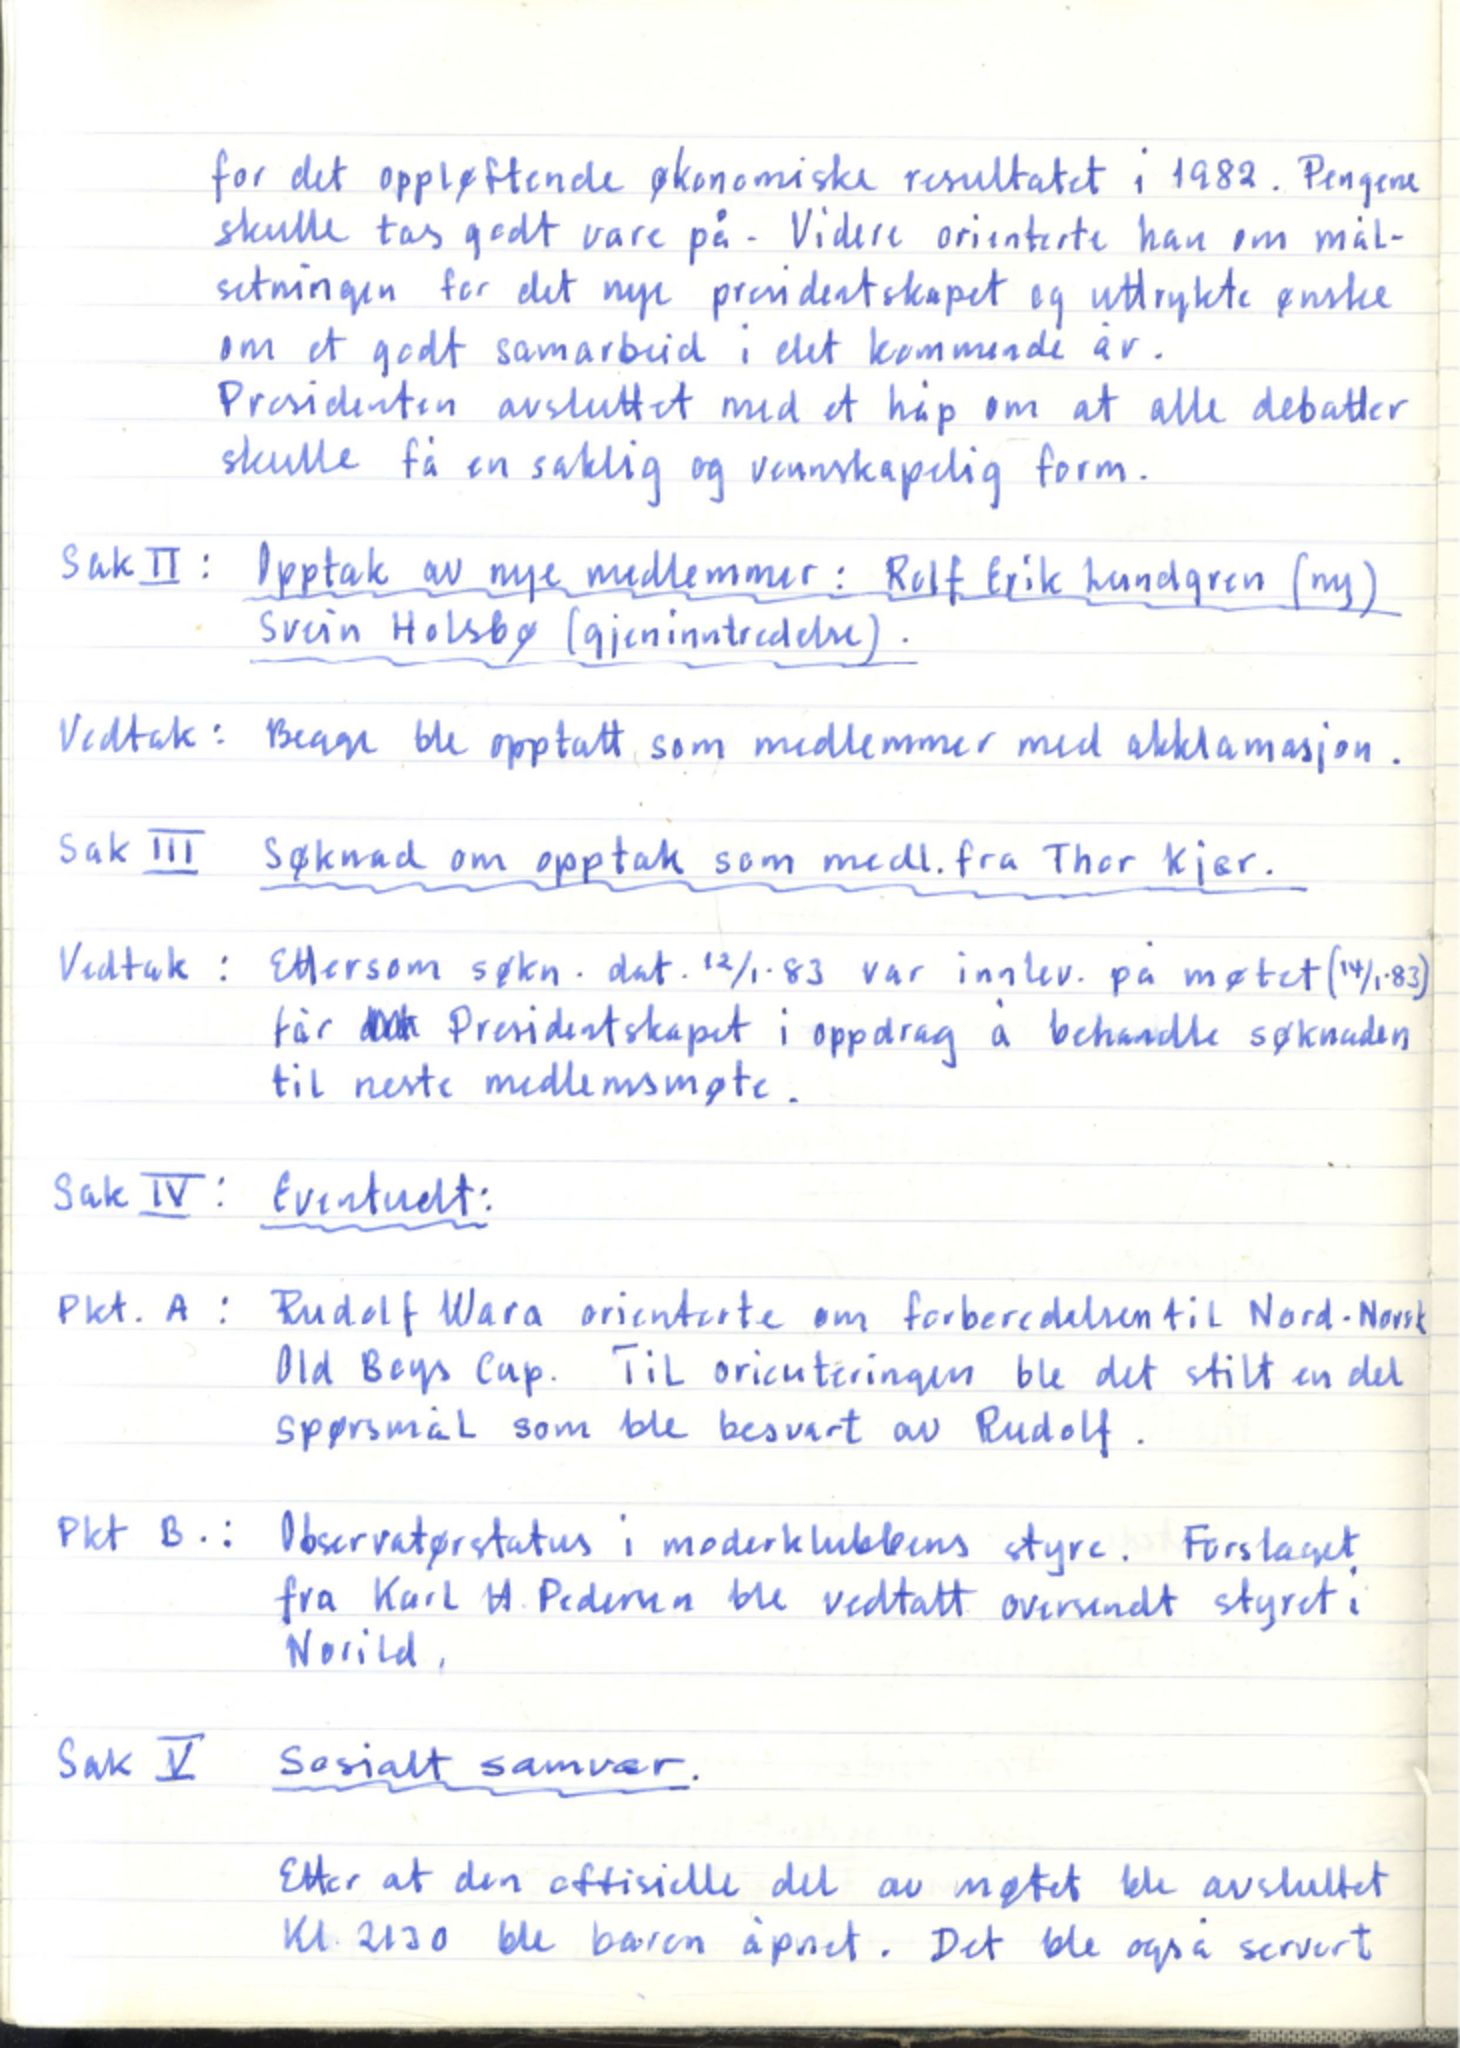 for det oppløftende økonomiske resultatet i 1982. Pengene
skulle tas godt vare på. Videre orienterte han om mål-
setningen for det nye presidentskapet og uttrykte ønske
om et godt samarbeid i det kommende år.
Presidenten avsluttet med et håp om at alle debatter
skulle få en saklig og vennskapelig form.
Sak II: Opptak av nye medlemmer: Rolf Erik Lundgren (ny)
Svein Holsbø (gjeninntredelse).
Vedtak: Begge ble opptatt som medlemmer med akklamasjon.
Sak III Søknad om opptak som medl. fra Thor Kjær.
Vedtak: Ettersom søkn. dat. 12/1.83 var innlev. på møtet (14/1.83)
får Presidentskapet i oppdrag å behandle søknaden
til neste medlemsmøte.
Sak IV: Eventuelt:
Pkt. A: Rudolf Wara orienterte om forberedelsen til Nord-Norsk
Old Boys Cup. Til orienteringen ble det stilt en del
spørsmål som ble besvart av Rudolf.
Pkt B.: Observatørstatus i moderklubbens styre. Forslaget
fra Karl H. Pedersen ble vedtatt oversendt styret i
Norild.
Sak V Sosialt samvær.
Etter at den offisielle del av møtet ble avsluttet
Kl. 2130 ble baren åpnet. Det ble også servert